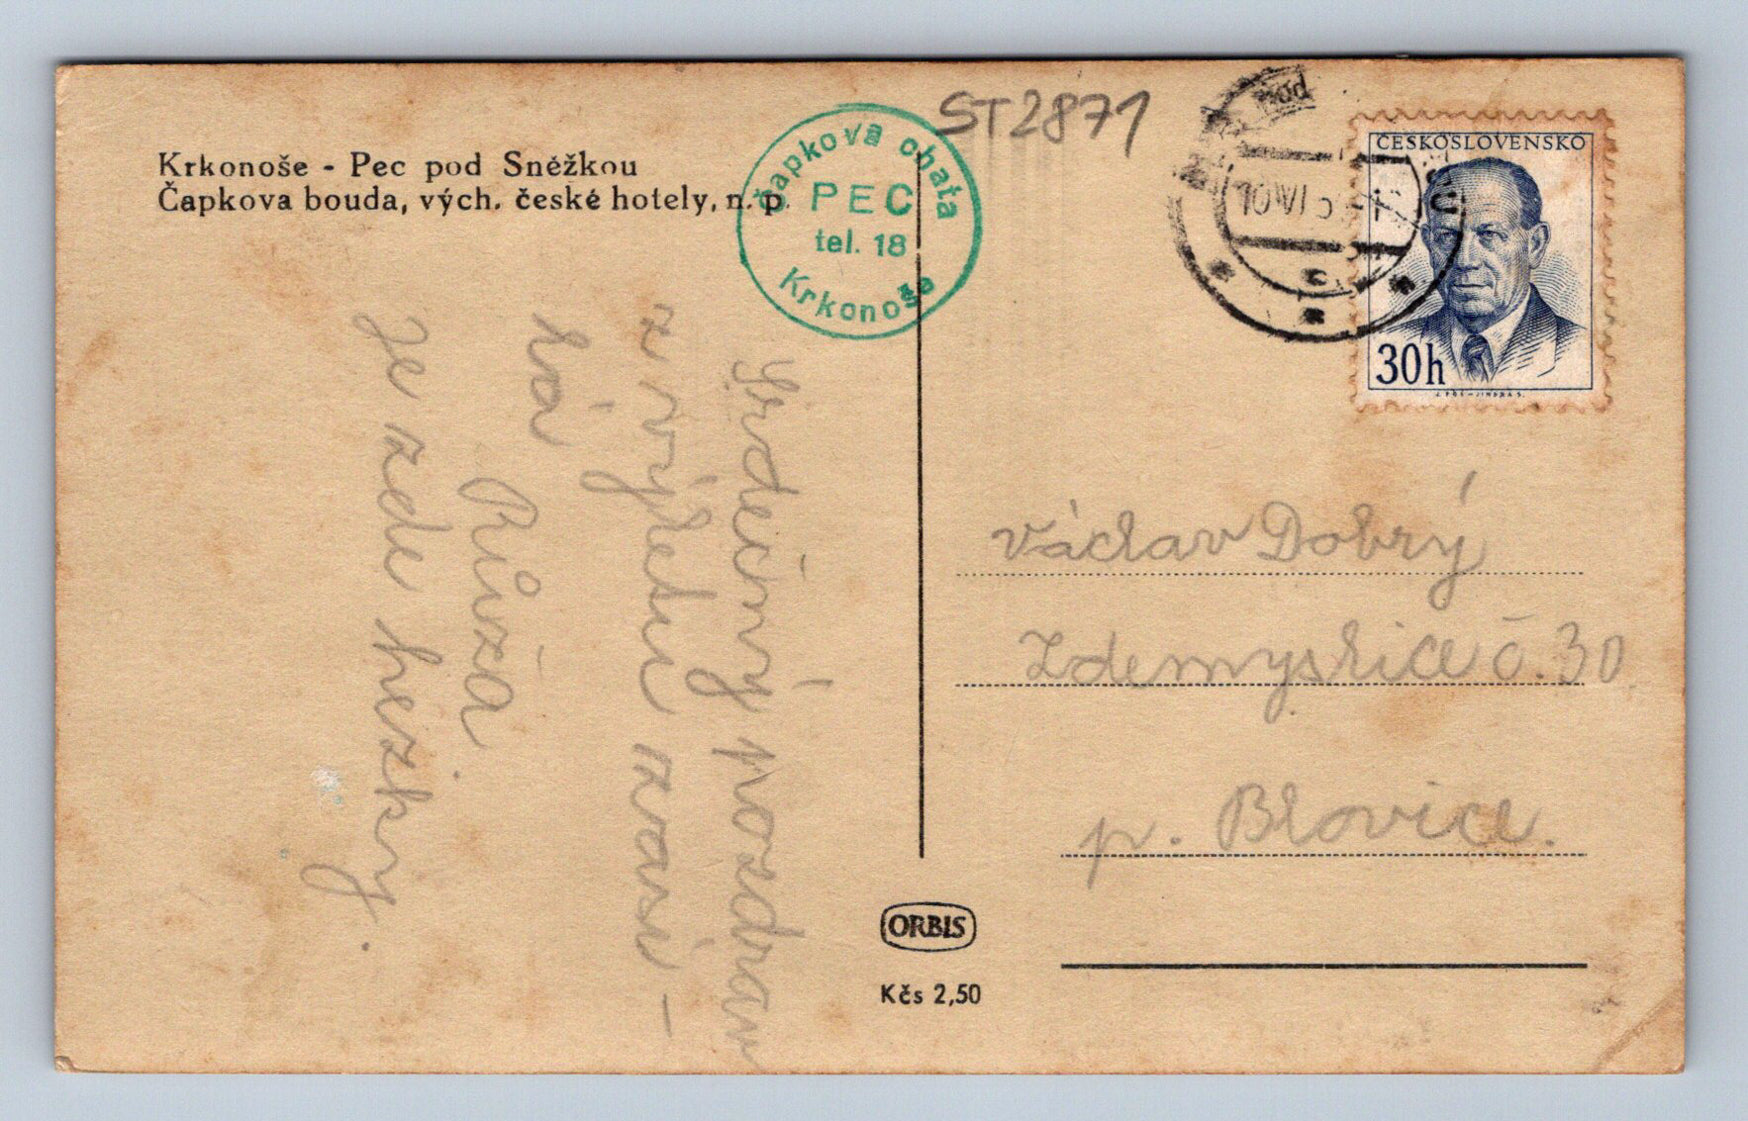 Krkonoše - Pec pod Sněžkou
Čapkova bouda, vých. české hotely, n. p.
Čapkova chata
PEC
tel. 18
Krkonoše
ST2871
ČESKOSLOVENSKO
30h
10 VI 5
Srdečný pozdrav
z výletu zasí-
lá
Růža
Je zde hezky.
Václav Dobrý
Zdemyslice č. 30
p. Blovice.
ORBIS
Kčs 2,50